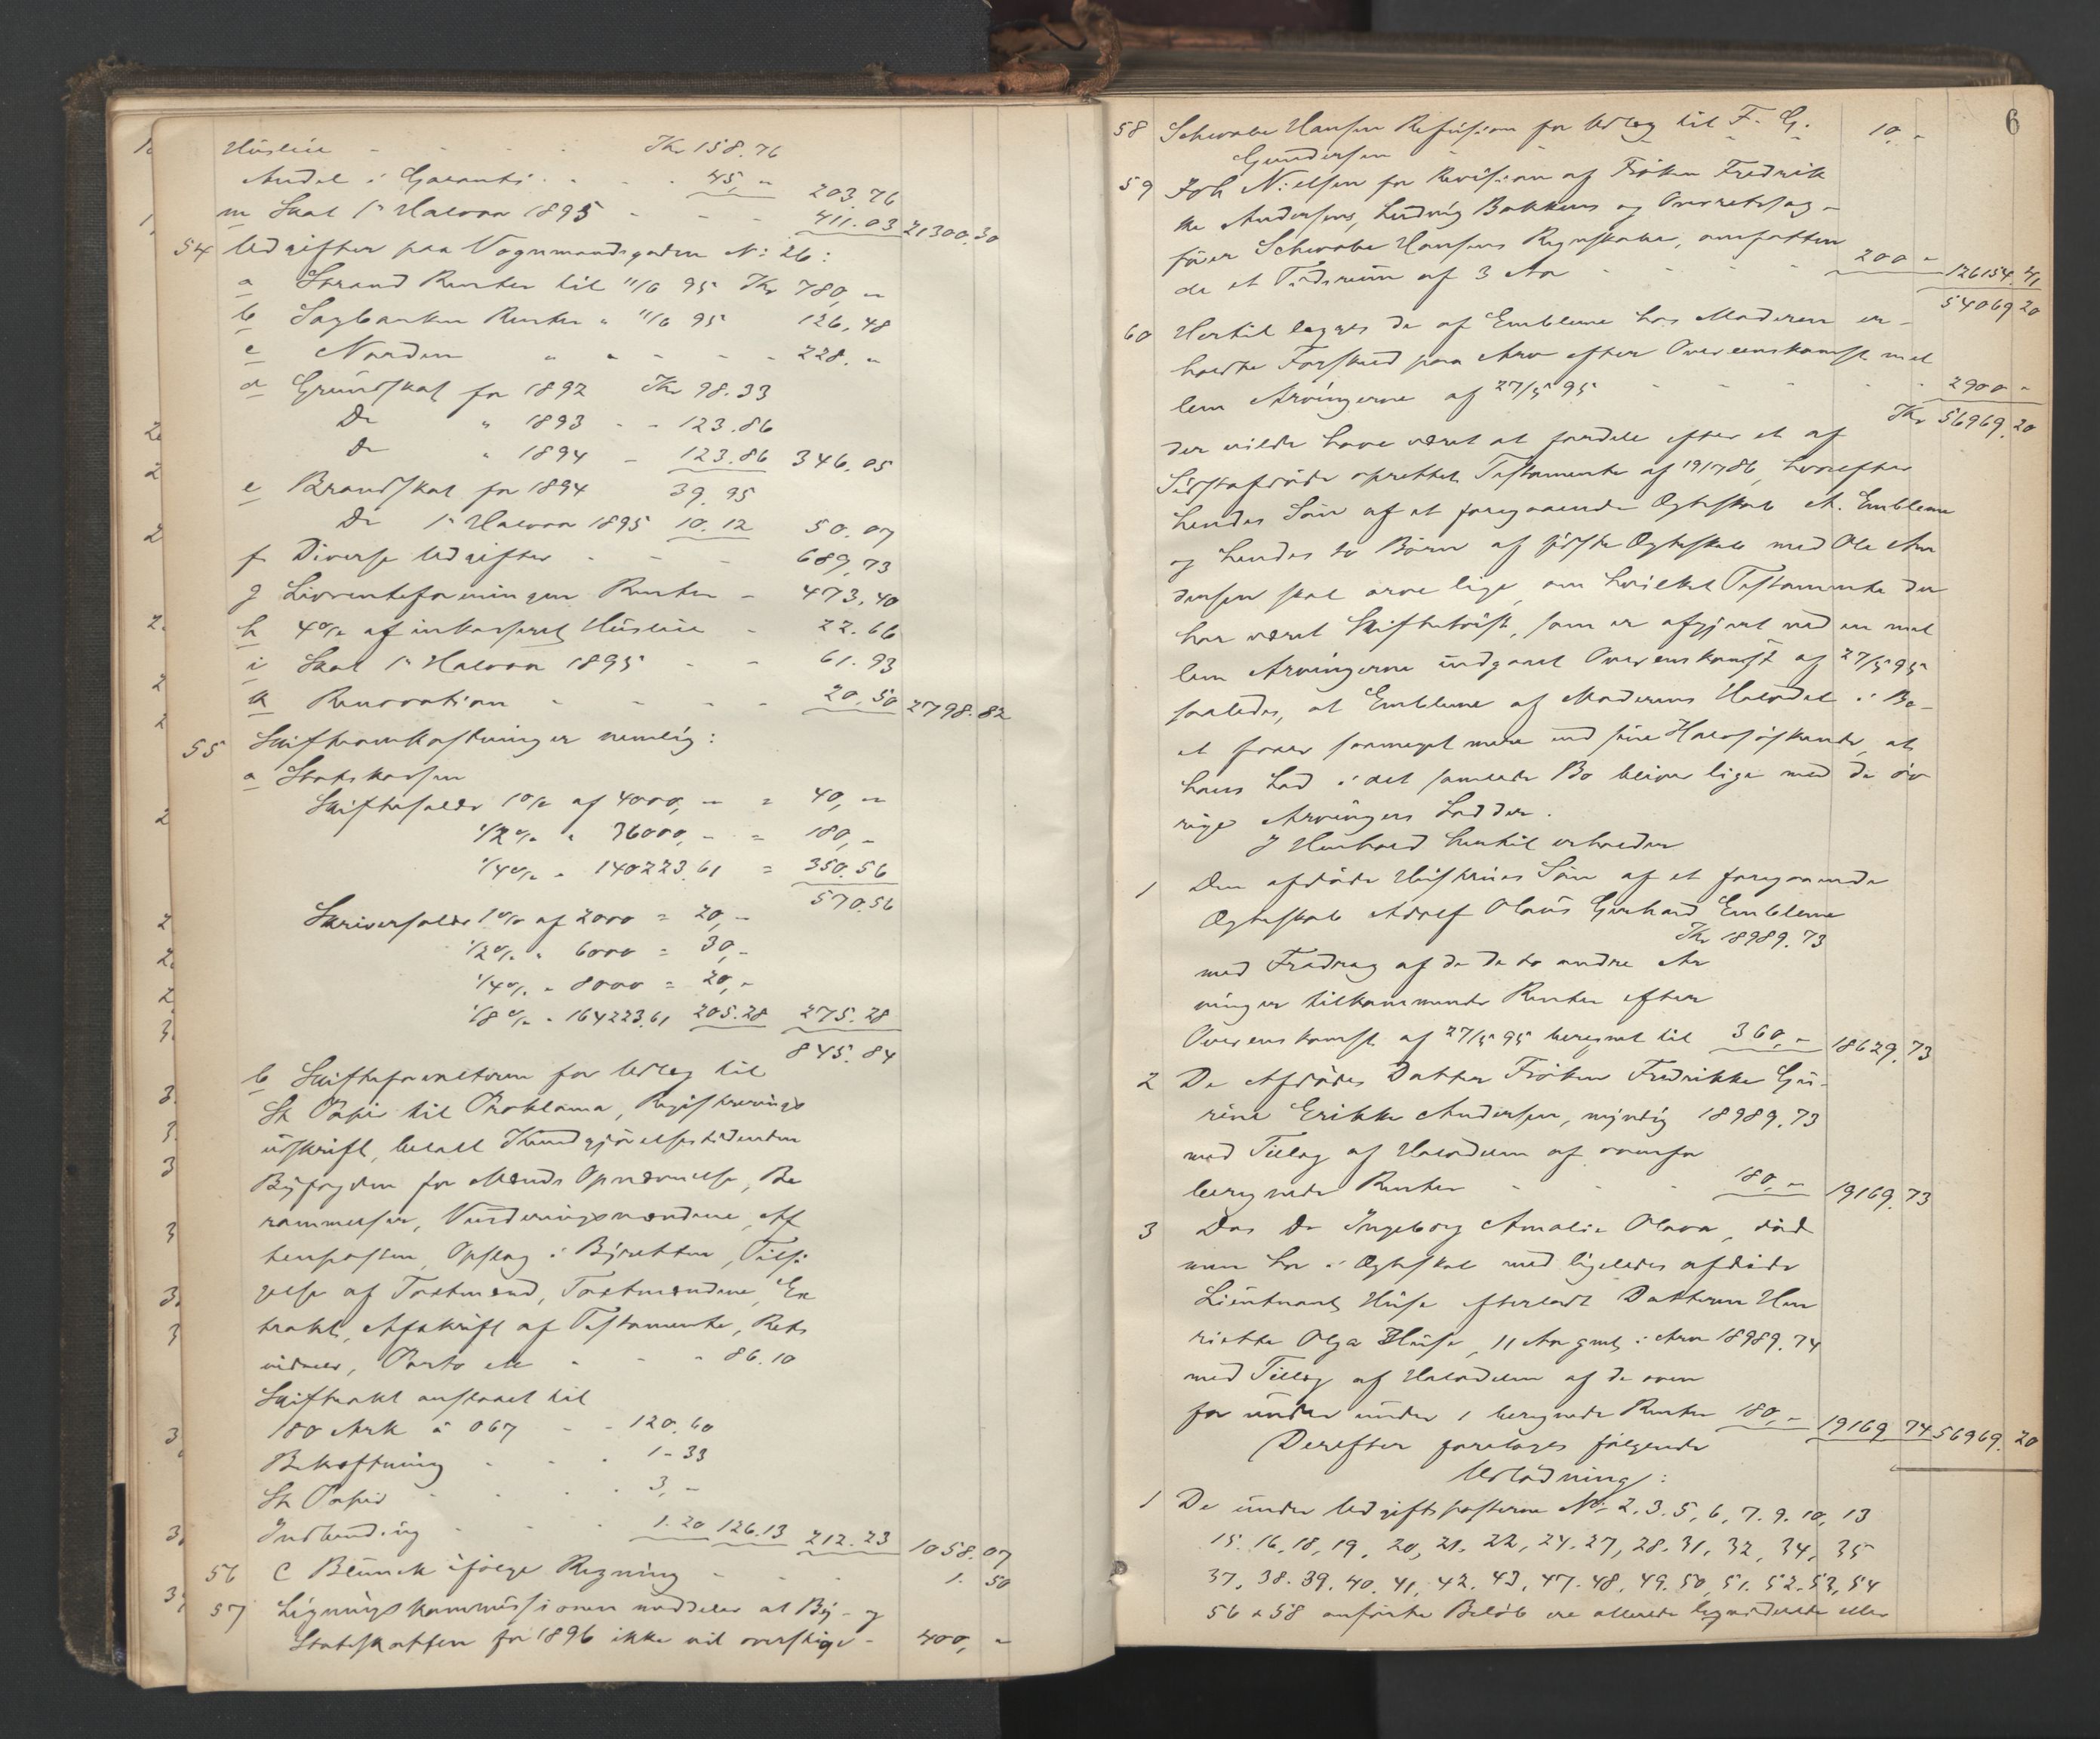 Husleie - - - - Kr 158.76
Andel i Garanti - - - 45,- 203.76
m Skat 1ste Halvaar 1895 - - - 411.03 21300.30
54 Udgifter paa Vognmandsgaden N: 26:
a Strand Renter til 11/6 95 Kr 780,-
b Saxbanken Renter " 11/6 95 126,48
c Norden " " - - - 228.-
d Grundskat for 1892 Kr 98.33
Do " 1893 - - 123.86
Do " 1894 - 123.86 346.05
e Brandskat for 1894 39.95
Do 1ste Halvaar 1895 10.12 50.07
f Diverse Udgifter - - - 689.73
g Livrenteforeningen Renter - 473,40
h 4% af inkasseret Husleie - 22.66
i Skat 1ste Halvaar 1895 - - 61.93
k Renovation - - - - 20.50 2798.82
55 Skifteomkostninger nemlig:
a Statskassen
Skiftesalær 1% af 4000,- = 40,-
1/2% " 36000,- = 180,-
1/4% " 140223.61 = 350.56
570.56
Skriversalær 1% af 2000 = 20,-
1/2% " 6000 = 30,-
1/4% " 8000 = 20,-
1/8% " 164223.61 205.28 275.28
845.84
b Skifteforvalteren for Udlæg til
St Papir til Proklama, Registrerings
udskrift, betalt Kundgjørelsestidenden
Byfogden for Mænds Opnævnelse, Be
rammelser, Vurderingsmændene, Af
tenposten, Opslag i Byretten, Tilsi
gelse af Taxtmænd, Taxtmændene, Ex
trakt, Afskrift af Testamente, Rets
vidner, Porto etc - - - 86.10
Skifteakt anslaaet til
180 Ark à 067 - - 120.60
Bekræftning - - - 1-33
St Papir - - - - 3,-
Indbinding - - - 1.20 126.13 212.23 1058.07
56 C Blunck ifølge Regning - - - 1.50
57 Ligningskommissionen meddeler at By- og
Statskatten for 1896 ikke vil overstige - 400,-
6
58 Schwabe Hansen Refusion for Udlæg til F. G.
Gundersen - - - - 10,-
59 Joh Nielsen for Revision af Frøken Fredrik
ke Andersens, Ludvig Bakkens og Overretssag-
fører Schwabe Hansens Regnskaber, omfatten
de et Tidsrum af 3 Aar - - - - 200- 126154.41
54069 20
60 Hertil lægges de af Embleme hos Moderen er-
holdte Forskud paa Arv efter Overeenskomst mel
lem Arvingerne af 27/5 95 - - - - 2900-
Kr 56969.20
der vilde have været at fordele efter et af
Sidstafdøde oprettet Testamente af 19/7 86, hvorefter
hendes Søn af et foregaaende Ægteskab A. Embleme
og hendes to Børn af sidste Ægteskab med Ole An
dersen skal arve lige, om hvilket Testamente der
har været Skiftetvist, som er afgjort ved en mel
lem Arvingerne indgaaet Overenskomst af 27/5 95
saaledes, at Embleme af Moderens Halvdel i Bo-
et faaer saameget mere end sine Halvsøskende, at
hans Lod i det samlede Bo bliver lige med de øv
rige Arvingers Lodder.
I Henhold hertil erholder
1 Den afdøde Hustrues Søn af et foregaaende
Ægteskab Adolf Olaus Gerhard Embleme
Kr 18989.73
med Fradrag af de de to andre Ar
vinger tilkommende Renter efter
Overenskomst af 27/5 95 beregnet til 360,- 18629.73
2 De Afdødes Datter Frøken Fredrikke Gu-
rine Erikke Andersen, myndig 18989.73
med Tillæg af Halvdelen af ovenfor
beregnede Renter - - - 180,- 19169.73
3 Das Do Ingeborg Amalie Olava, død
men har i Ægteskab med ligeledes afdøde
Lieutnant Huse efterladt Datteren Hen
riette Olga Huse, 11 Aar gml i Arv 18989.74
med Tillæg af Halvdelen af de oven
for under under 1 beregnede Renter 180,- 19169 74 56969.20
Derefter foretoges følgende
Udlodning:
1 De under Udgiftsposterne No 2. 3. 5, 6, 7. 9. 10, 13
15. 16. 18, 19, 20, 21. 22, 24. 27, 28. 31, 32, 34, 35
37, 38. 39. 40. 41. 42. 43, 47. 48, 49. 50, 51. 52. 53, 54
56 & 58 anførte Beløb ere allerede likviderede eller